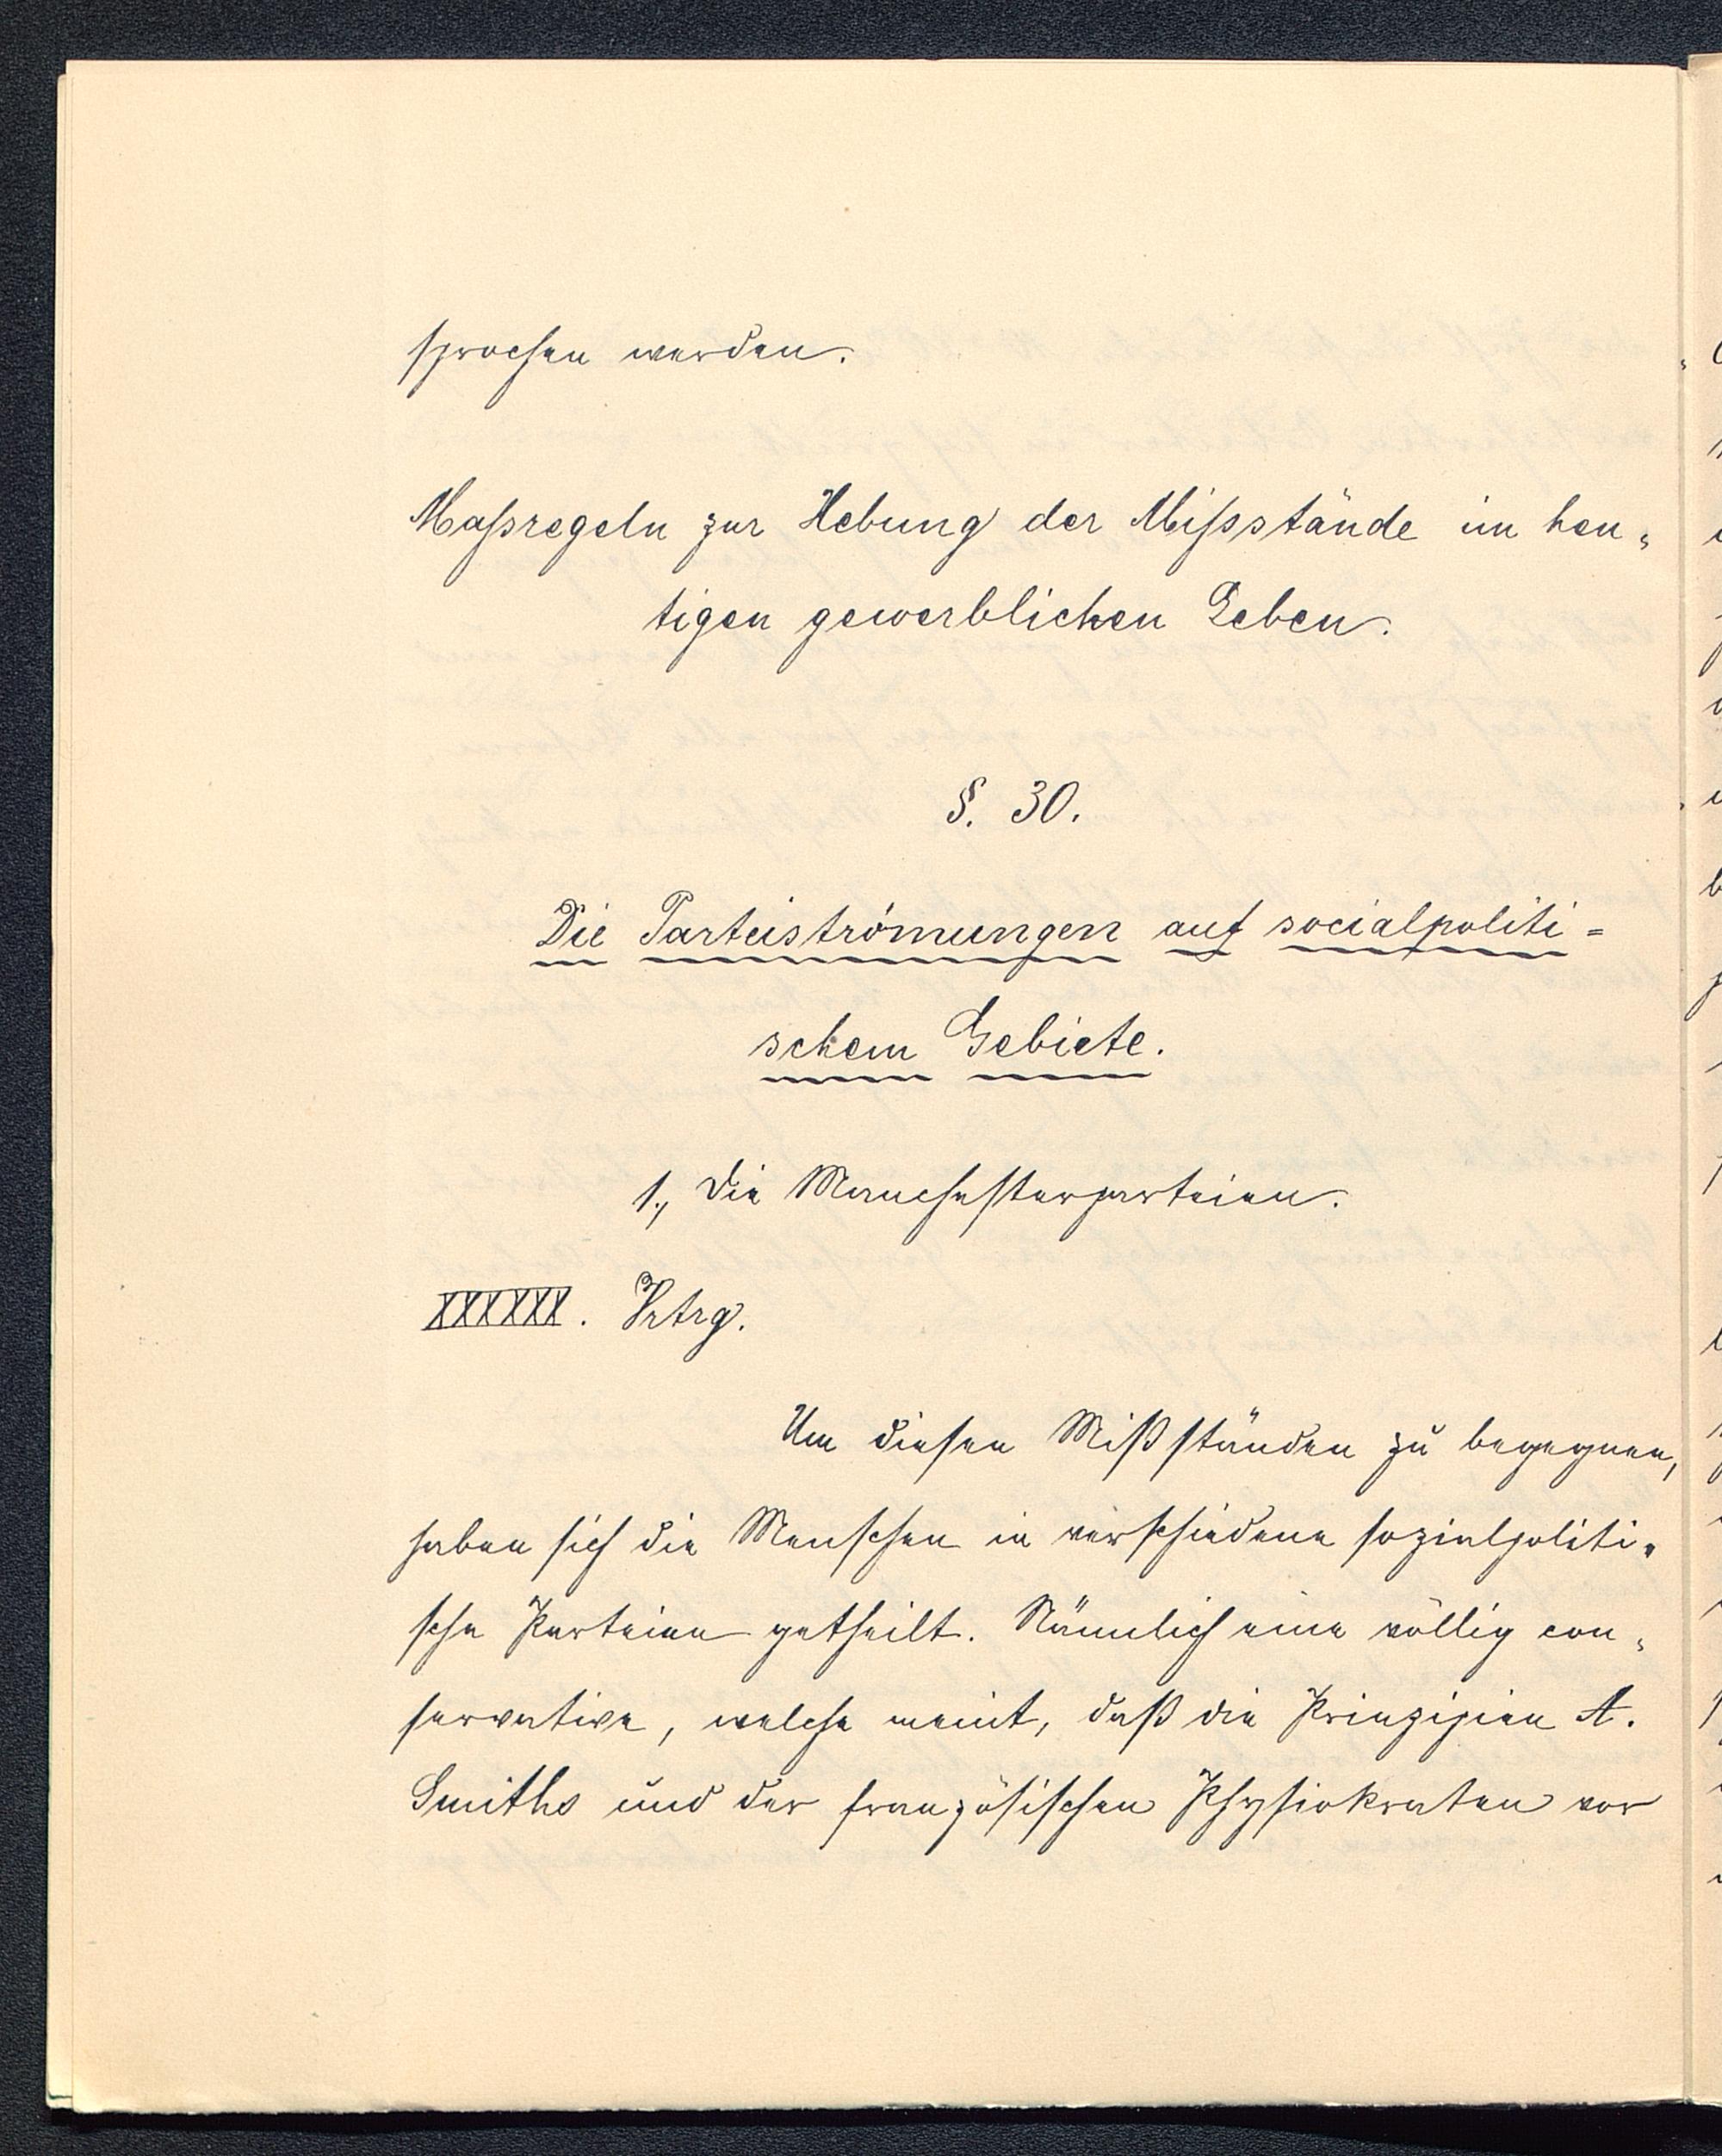 sprochen werden.
Maßregeln zur Hebung der Mißstände im heu-
tigen gewerblichen Leben.
§. 30.
Die Parteiströmungen auf socialpoliti=
schem Gebiete.
1., Die Manchesterparteien.
XXXXXX. Vrtrg.
Um diesen Mißständen zu begegnen,
haben sich die Menschen in verschiedene sozialpoliti-
sche Parteien getheilt. Nämlich eine völlig con-
servative, welche meint, daß die Prinzipien A.
Smiths und der französischen Physiokraten vor